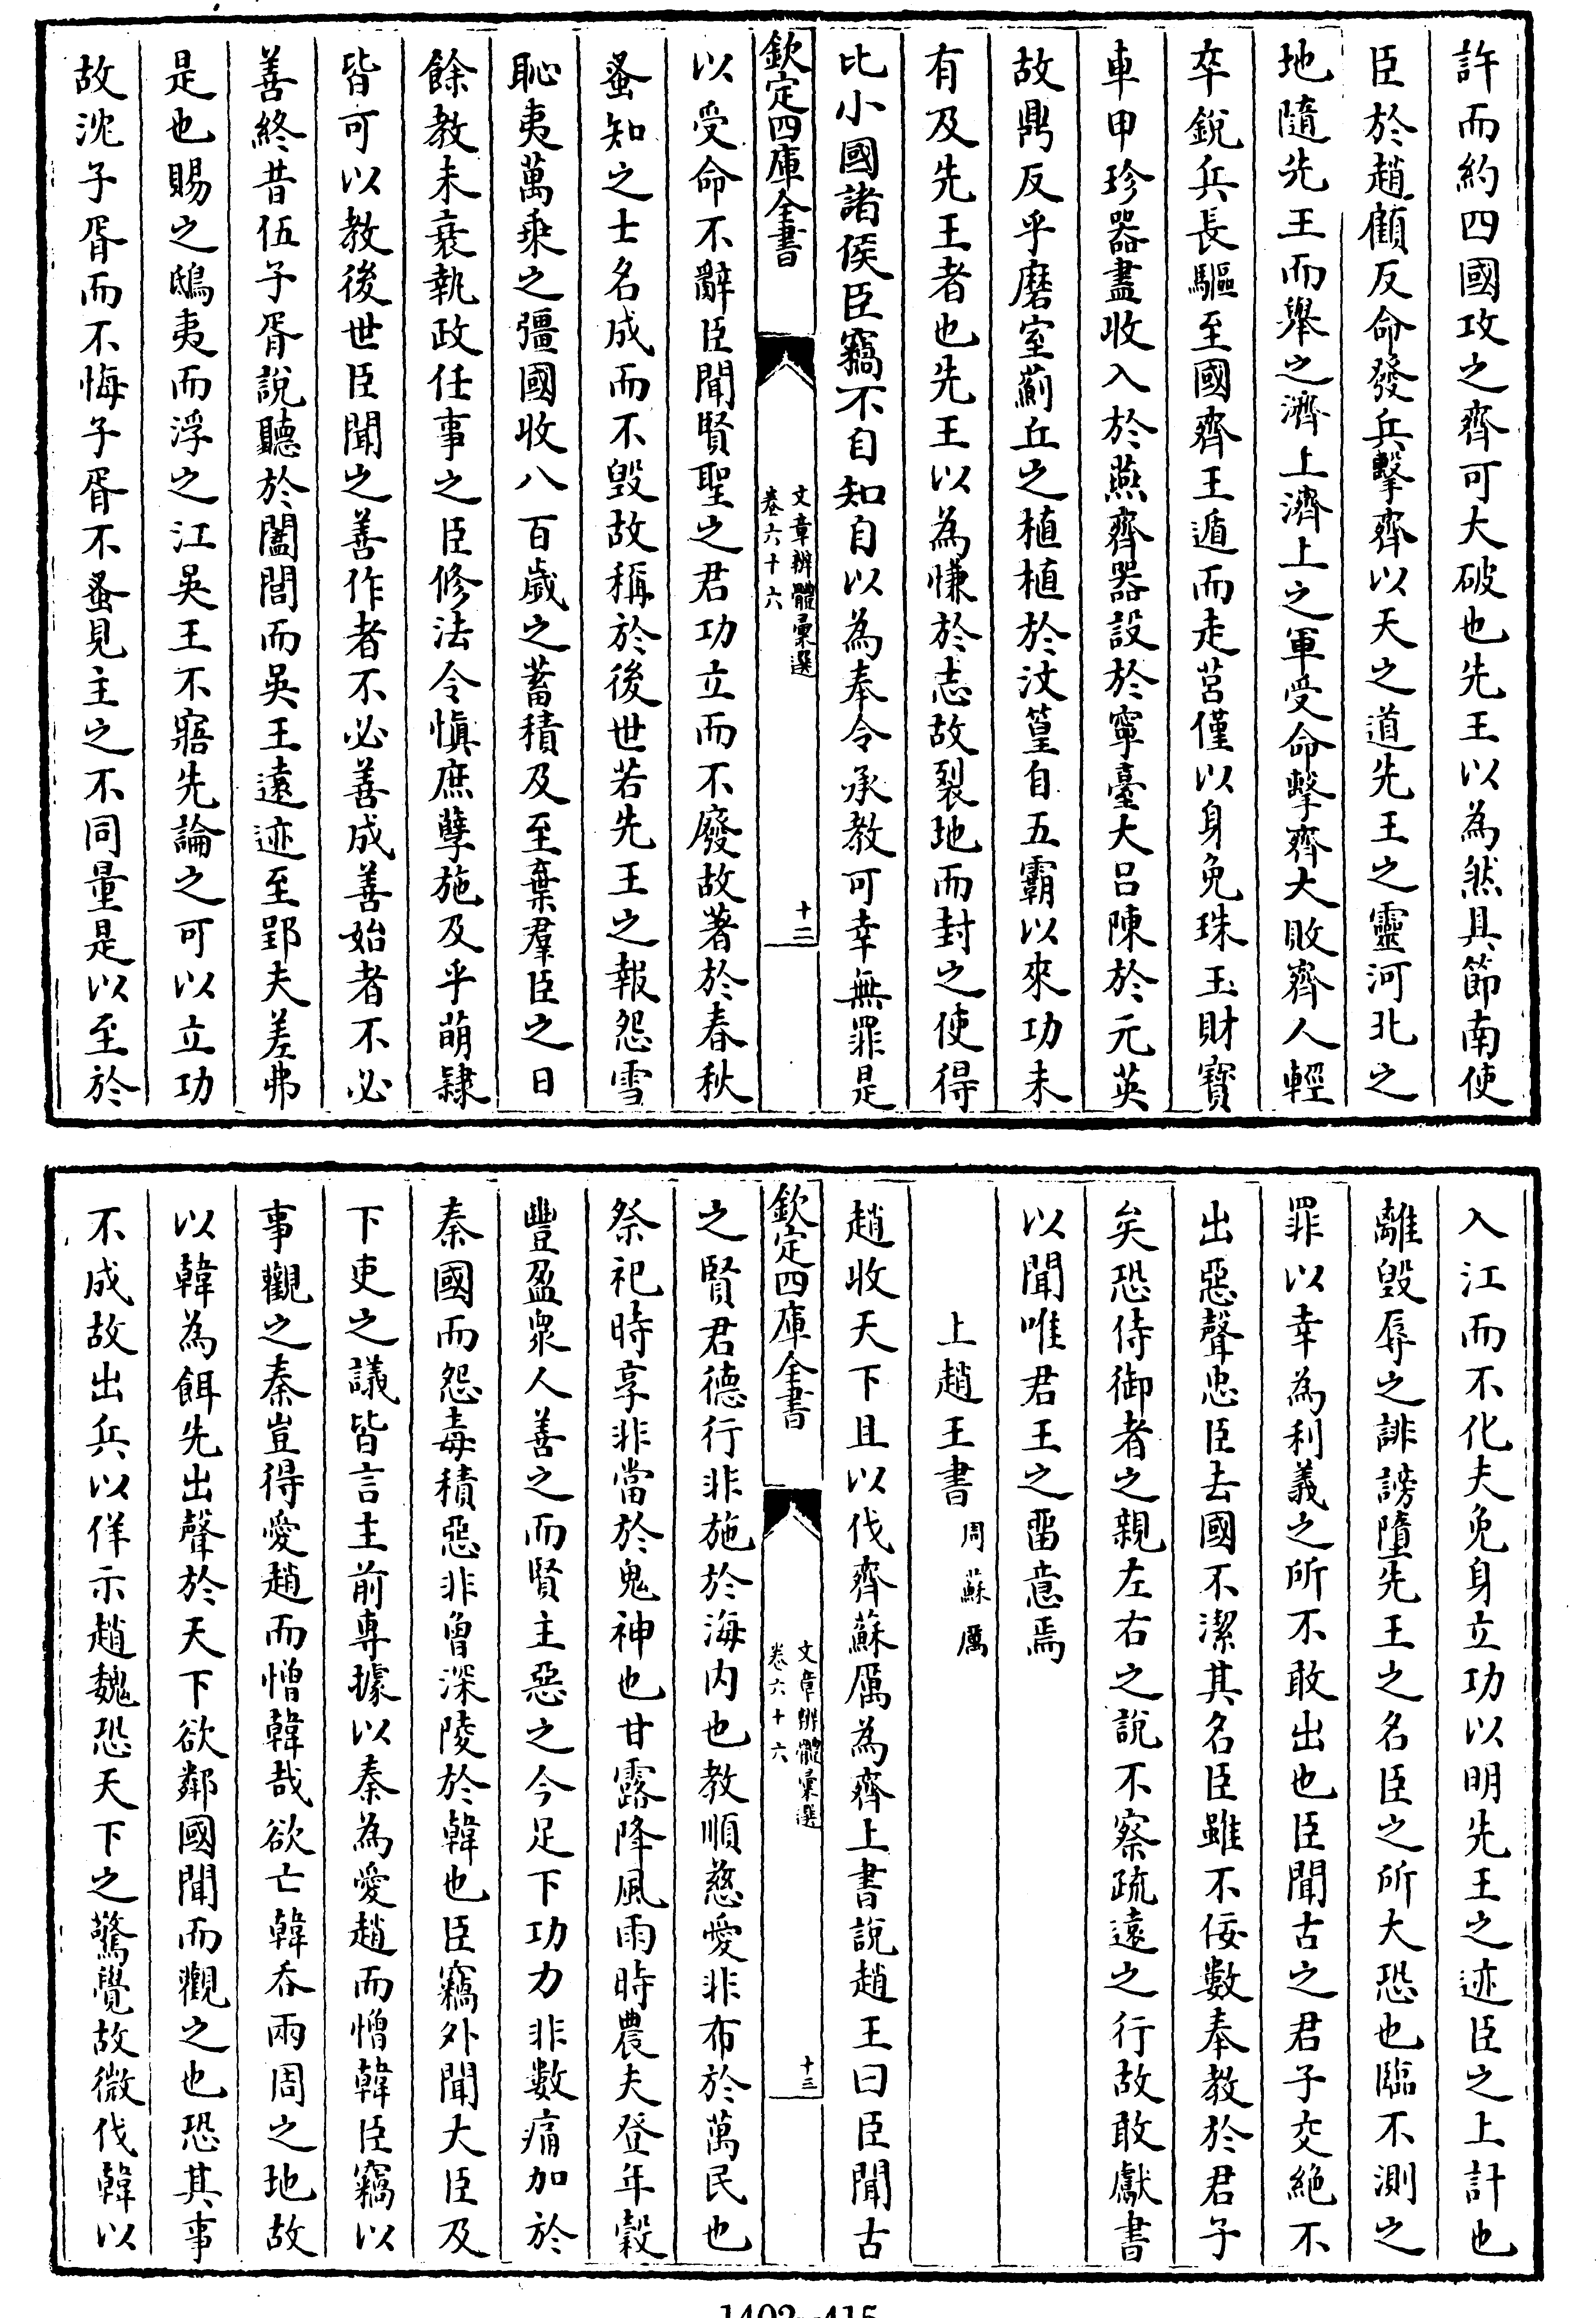 許而約四國攻之齊可大破也先王以為然具節南使
臣於趙顧反命發兵擊齊以天之道先王之靈河北之
地隨先王而舉之濟上濟上之軍受命擊齊大敗齊人輕
卒銳兵長驅至國齊王遁而走莒僅以身免珠玉財寶
車甲珍器盡收入於燕齊器設於寧臺大呂陳於元英
故鼎反乎磨室薊丘之植植於汶篁自五霸以來功未
有及先王者也先王以為慊於志故裂地而封之使得
比小國諸侯臣竊不自知自以為奉令承教可幸無罪是
欽定四庫全書
文章辨體彙選
卷六十六
十二
以受命不辭臣聞賢聖之君功立而不廢故著於春秋
蚤知之士名成而不毁故稱於後世若先王之報怨雪
恥夷萬乘之彊國收八百歲之蓄積及至棄羣臣之日
餘教未衰執政任事之臣修法令慎庶孽施及乎萌隸
皆可以教後世臣聞之善作者不必善成善始者不必
善終昔伍子胥說聽於闔閭而吳王遠迹至郢夫差弗
是也賜之鴟夷而浮之江吳王不寤先論之可以立功
故沈子胥而不悔子胥不蚤見主之不同量是以至於
入江而不化夫免身立功以明先王之迹臣之上計也
離毁辱之誹謗墮先王之名臣之所大恐也臨不測之
罪以幸為利義之所不敢出也臣聞古之君子交絶不
出惡聲忠臣去國不潔其名臣雖不佞數奉教於君子
矣恐侍御者之親左右之說不察疏遠之行故敢獻書
以聞唯君王之畱意焉
上趙王書 周 蘇厲
趙收天下且以伐齊蘇厲為齊上書說趙王曰臣聞古
欽定四庫全書
文章辨體彙選
卷六十六
十三
之賢君德行非施於海内也教順慈愛非布於萬民也
祭祀時享非當於鬼神也甘露降風雨時農夫登年穀
豐盈衆人善之而賢主惡之今足下功力非數痛加於
秦國而怨毒積惡非曾深陵於韓也臣竊外聞大臣及
下吏之議皆言主前專據以秦為愛趙而憎韓臣竊以
事觀之秦豈得愛趙而憎韓哉欲亡韓吞兩周之地故
以韓為餌先出聲於天下欲鄰國聞而觀之也恐其事
不成故出兵以佯示趙魏恐天下之驚覺故微伐韓以
1402—415